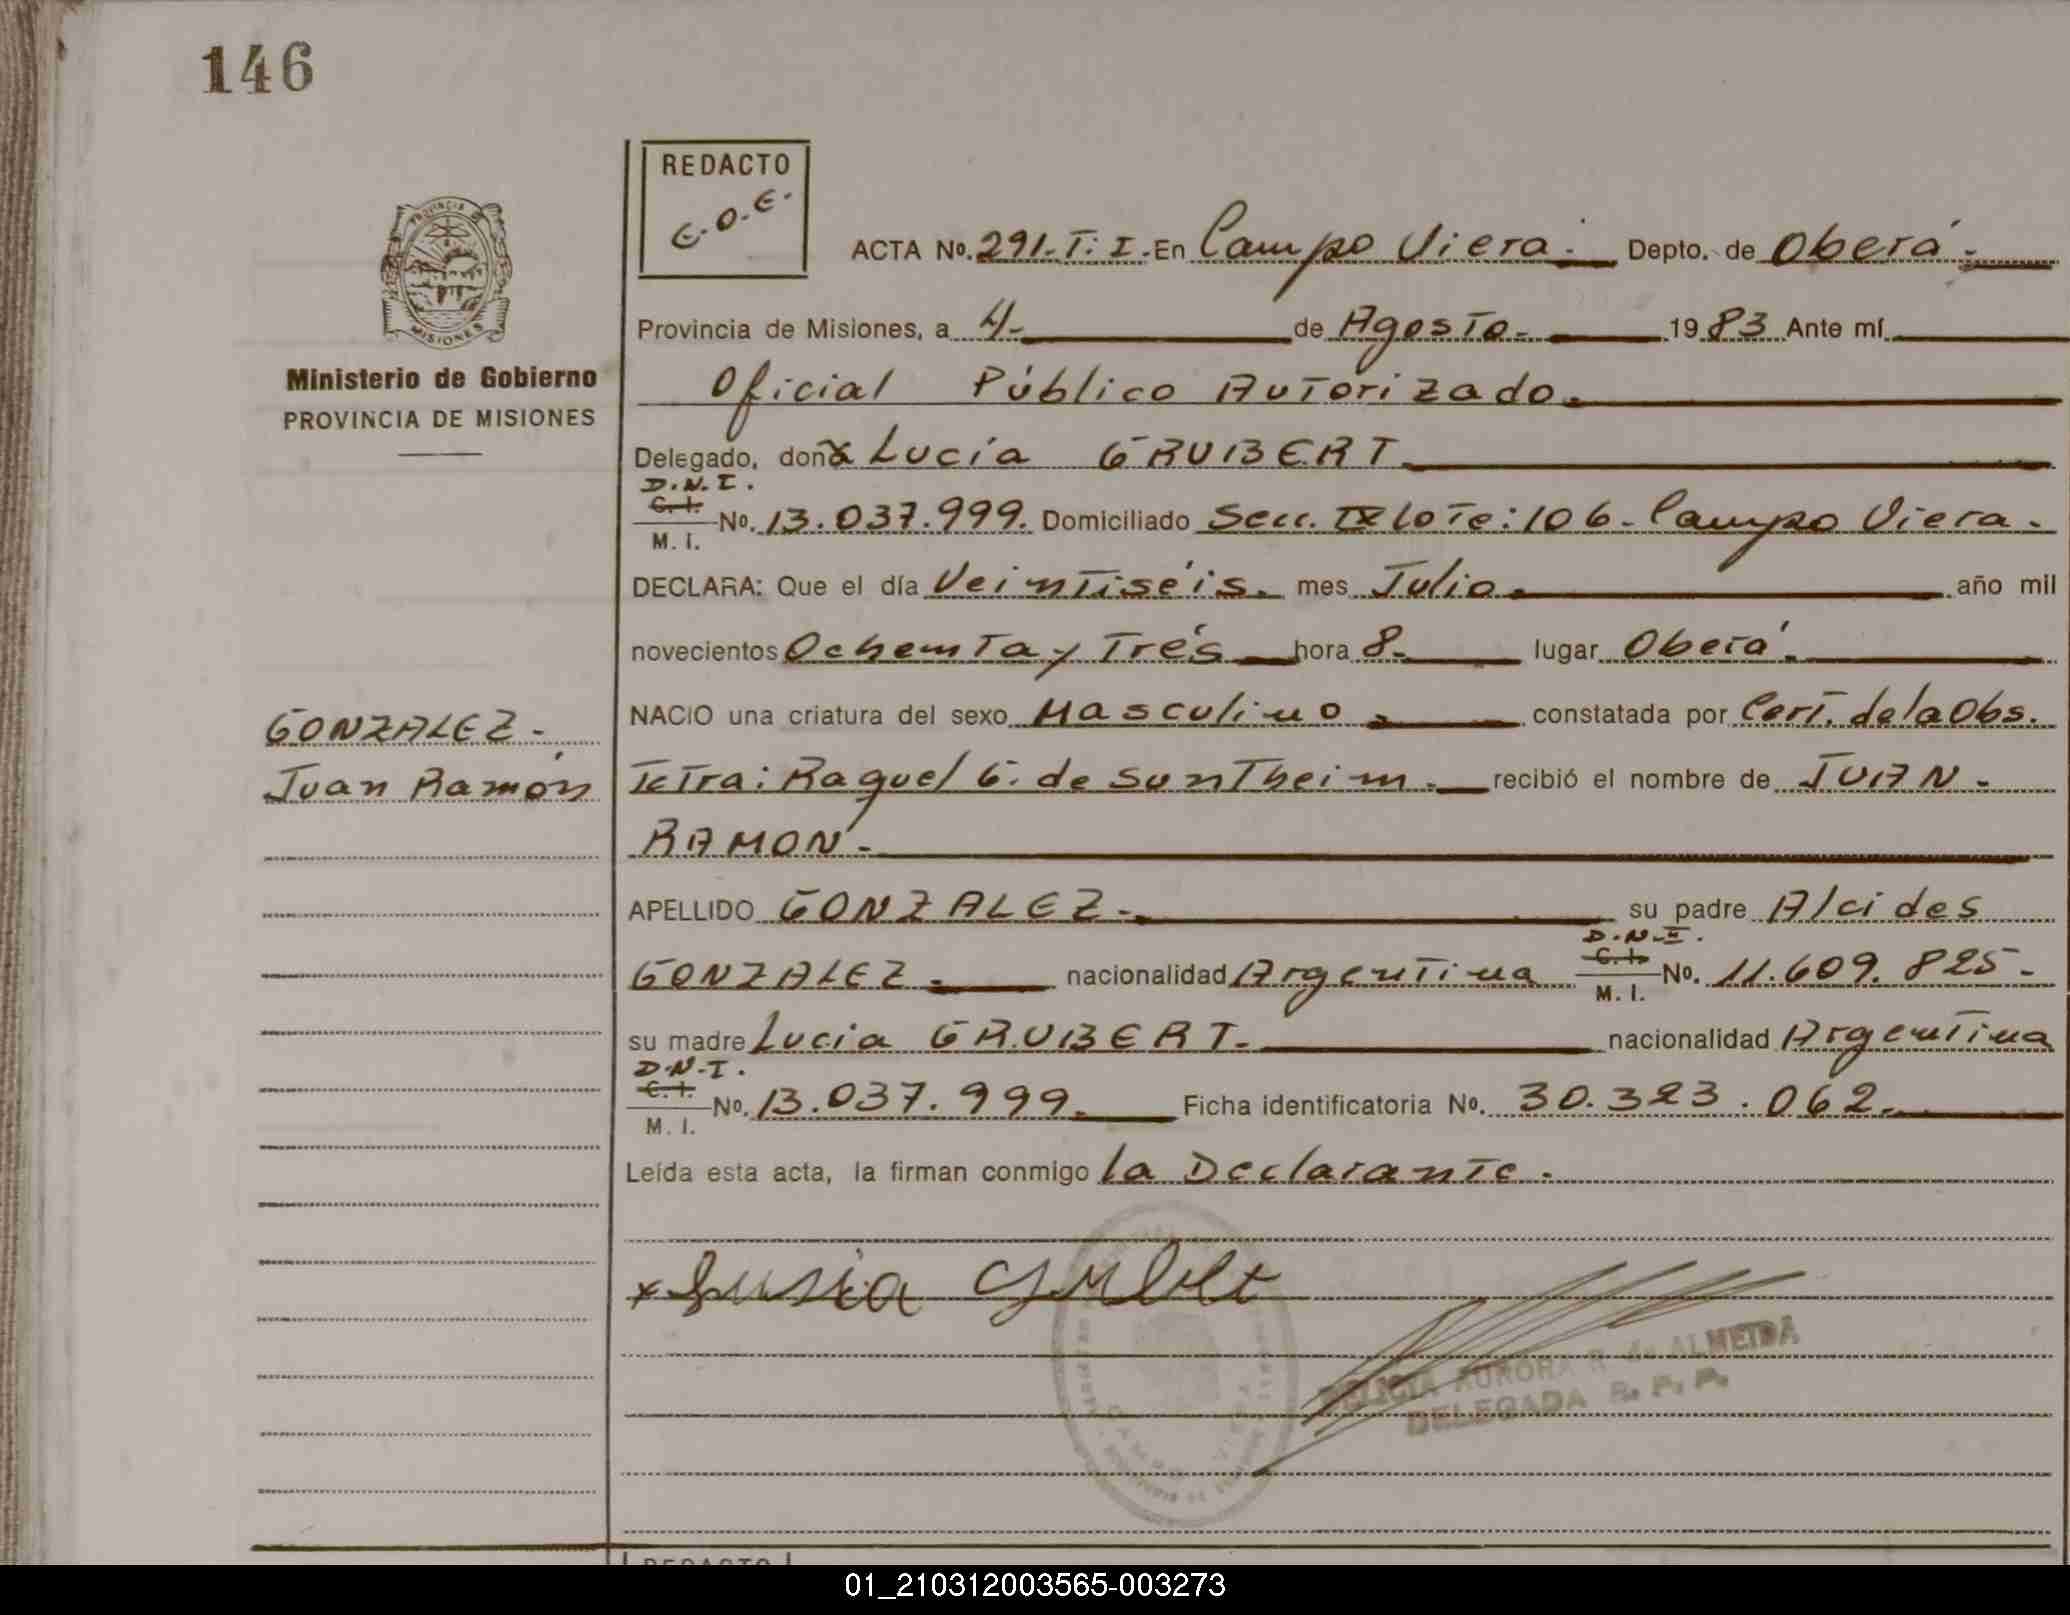 146
REDACTO
E.O.E.
PROVINCIA DE
MISIONES
Ministerio de Gobierno
PROVINCIA DE MISIONES
ACTA Nº. 291. T: I. En Campo Viera.- Depto. de Oberá.-
Provincia de Misiones, a 4.- de Agosto.- 1983 Ante mí
Oficial Público Autorizado.
Delegado, doña Lucía GRUBERT
D.N.I.
C. I.
M. I.
Nº. 13.037.999. Domiciliado Secc. IX lote: 106- Campo Viera.
DECLARA: Que el día Veintiséis. mes Julio. año mil
novecientos Ochenta y Trés hora 8.- lugar Oberá.-
GONZALEZ.-
Juan Ramón
NACIO una criatura del sexo Masculino.- constatada por Cert. de la Obs.
Tetra: Raquel G. de Suntheim.- recibió el nombre de JUAN.-
RAMON.-
APELLIDO GONZALEZ.- su padre Alcides
GONZALEZ.- nacionalidad Argentina
D.N.I.
C. I.
M. I.
Nº. 11.609.825.-
su madre Lucia GRUBERT.- nacionalidad Argentina
D.N.I.
C. I.
M. I.
Nº. 13.037.999. Ficha identificatoria Nº. 30.323.062.-
Leída esta acta, la firman conmigo la Declarante.
x Lusia
AURORA R. de ALMEIDA
DELEGADA R. P. P.
REDACTO
01_210312003565-003273